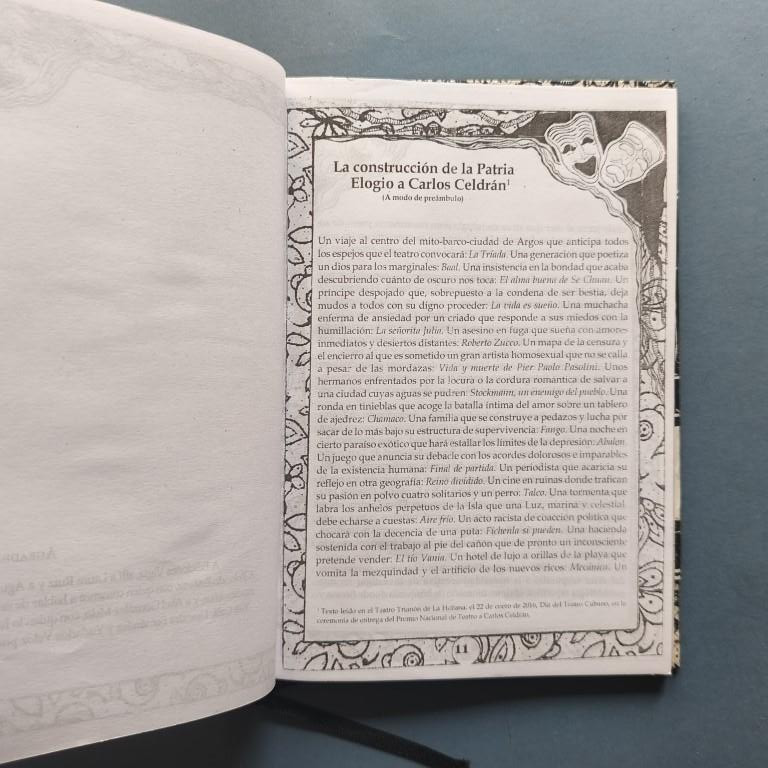 La construcción de la Patria
Elogio a Carlos Celdrán¹
(A modo de preámbulo)
Un viaje al centro del mito-barco-ciudad de Argos que anticipa todos
los espejos que el teatro convocará: La Tríada. Una generación que poetiza
un dios para los marginales: Baal. Una insistencia en la bondad que acaba
descubriendo cuánto de oscuro nos toca: El alma buena de Se Chuan. Un
príncipe despojado que, sobrepuesto a la condena de ser bestia, deja
mudos a todos con su digno proceder: La vida es sueño. Una muchacha
enferma de ansiedad por un criado que responde a sus miedos con la
humillación: La señorita Julia. Un asesino en fuga que sueña con amores
inmediatos y desiertos distantes: Roberto Zucco. Un mapa de la censura y
el encierro al que es sometido un gran artista homosexual que no se calla
a pesar de las mordazas: Vida y muerte de Pier Paolo Pasolini. Unos
hermanos enfrentados por la locura o la cordura romántica de salvar a
una ciudad cuyas aguas se pudren: Stockmann, un enemigo del pueblo. Una
ronda en tinieblas que acoge la batalla íntima del amor sobre un tablero
de ajedrez: Chamaco. Una familia que se construye a pedazos y lucha por
sacar de lo más bajo su estructura de supervivencia: Fango. Una noche en
cierto paraíso exótico que hará estallar los límites de la depresión: Abalon.
Un juego que anuncia su debacle con los acordes dolorosos e imparables
de la existencia humana: Final de partida. Un periodista que acaricia su
reflejo en otra geografía: Reino dividido. Un cine en ruinas donde trafican
su pasión en polvo cuatro solitarios y un perro: Talco. Una tormenta que
labra los anhelos perpetuos de la Isla que una Luz, marina y celestial,
debe echarse a cuestas: Aire frío. Un acto racista de coacción política que
chocará con la decencia de una puta: Fíchenla si pueden. Una hacienda
sostenida con el trabajo al pie del cañón que de pronto un inconsciente
pretende vender: El tío Vania. Un hotel de lujo a orillas de la playa que
vomita la mezquindad y el artificio de los nuevos ricos: Mecánica. Un
¹ Texto leído en el Teatro Trianón de La Habana, el 22 de enero de 2016, Día del Teatro Cubano, en la
ceremonia de entrega del Premio Nacional de Teatro a Carlos Celdrán.
11